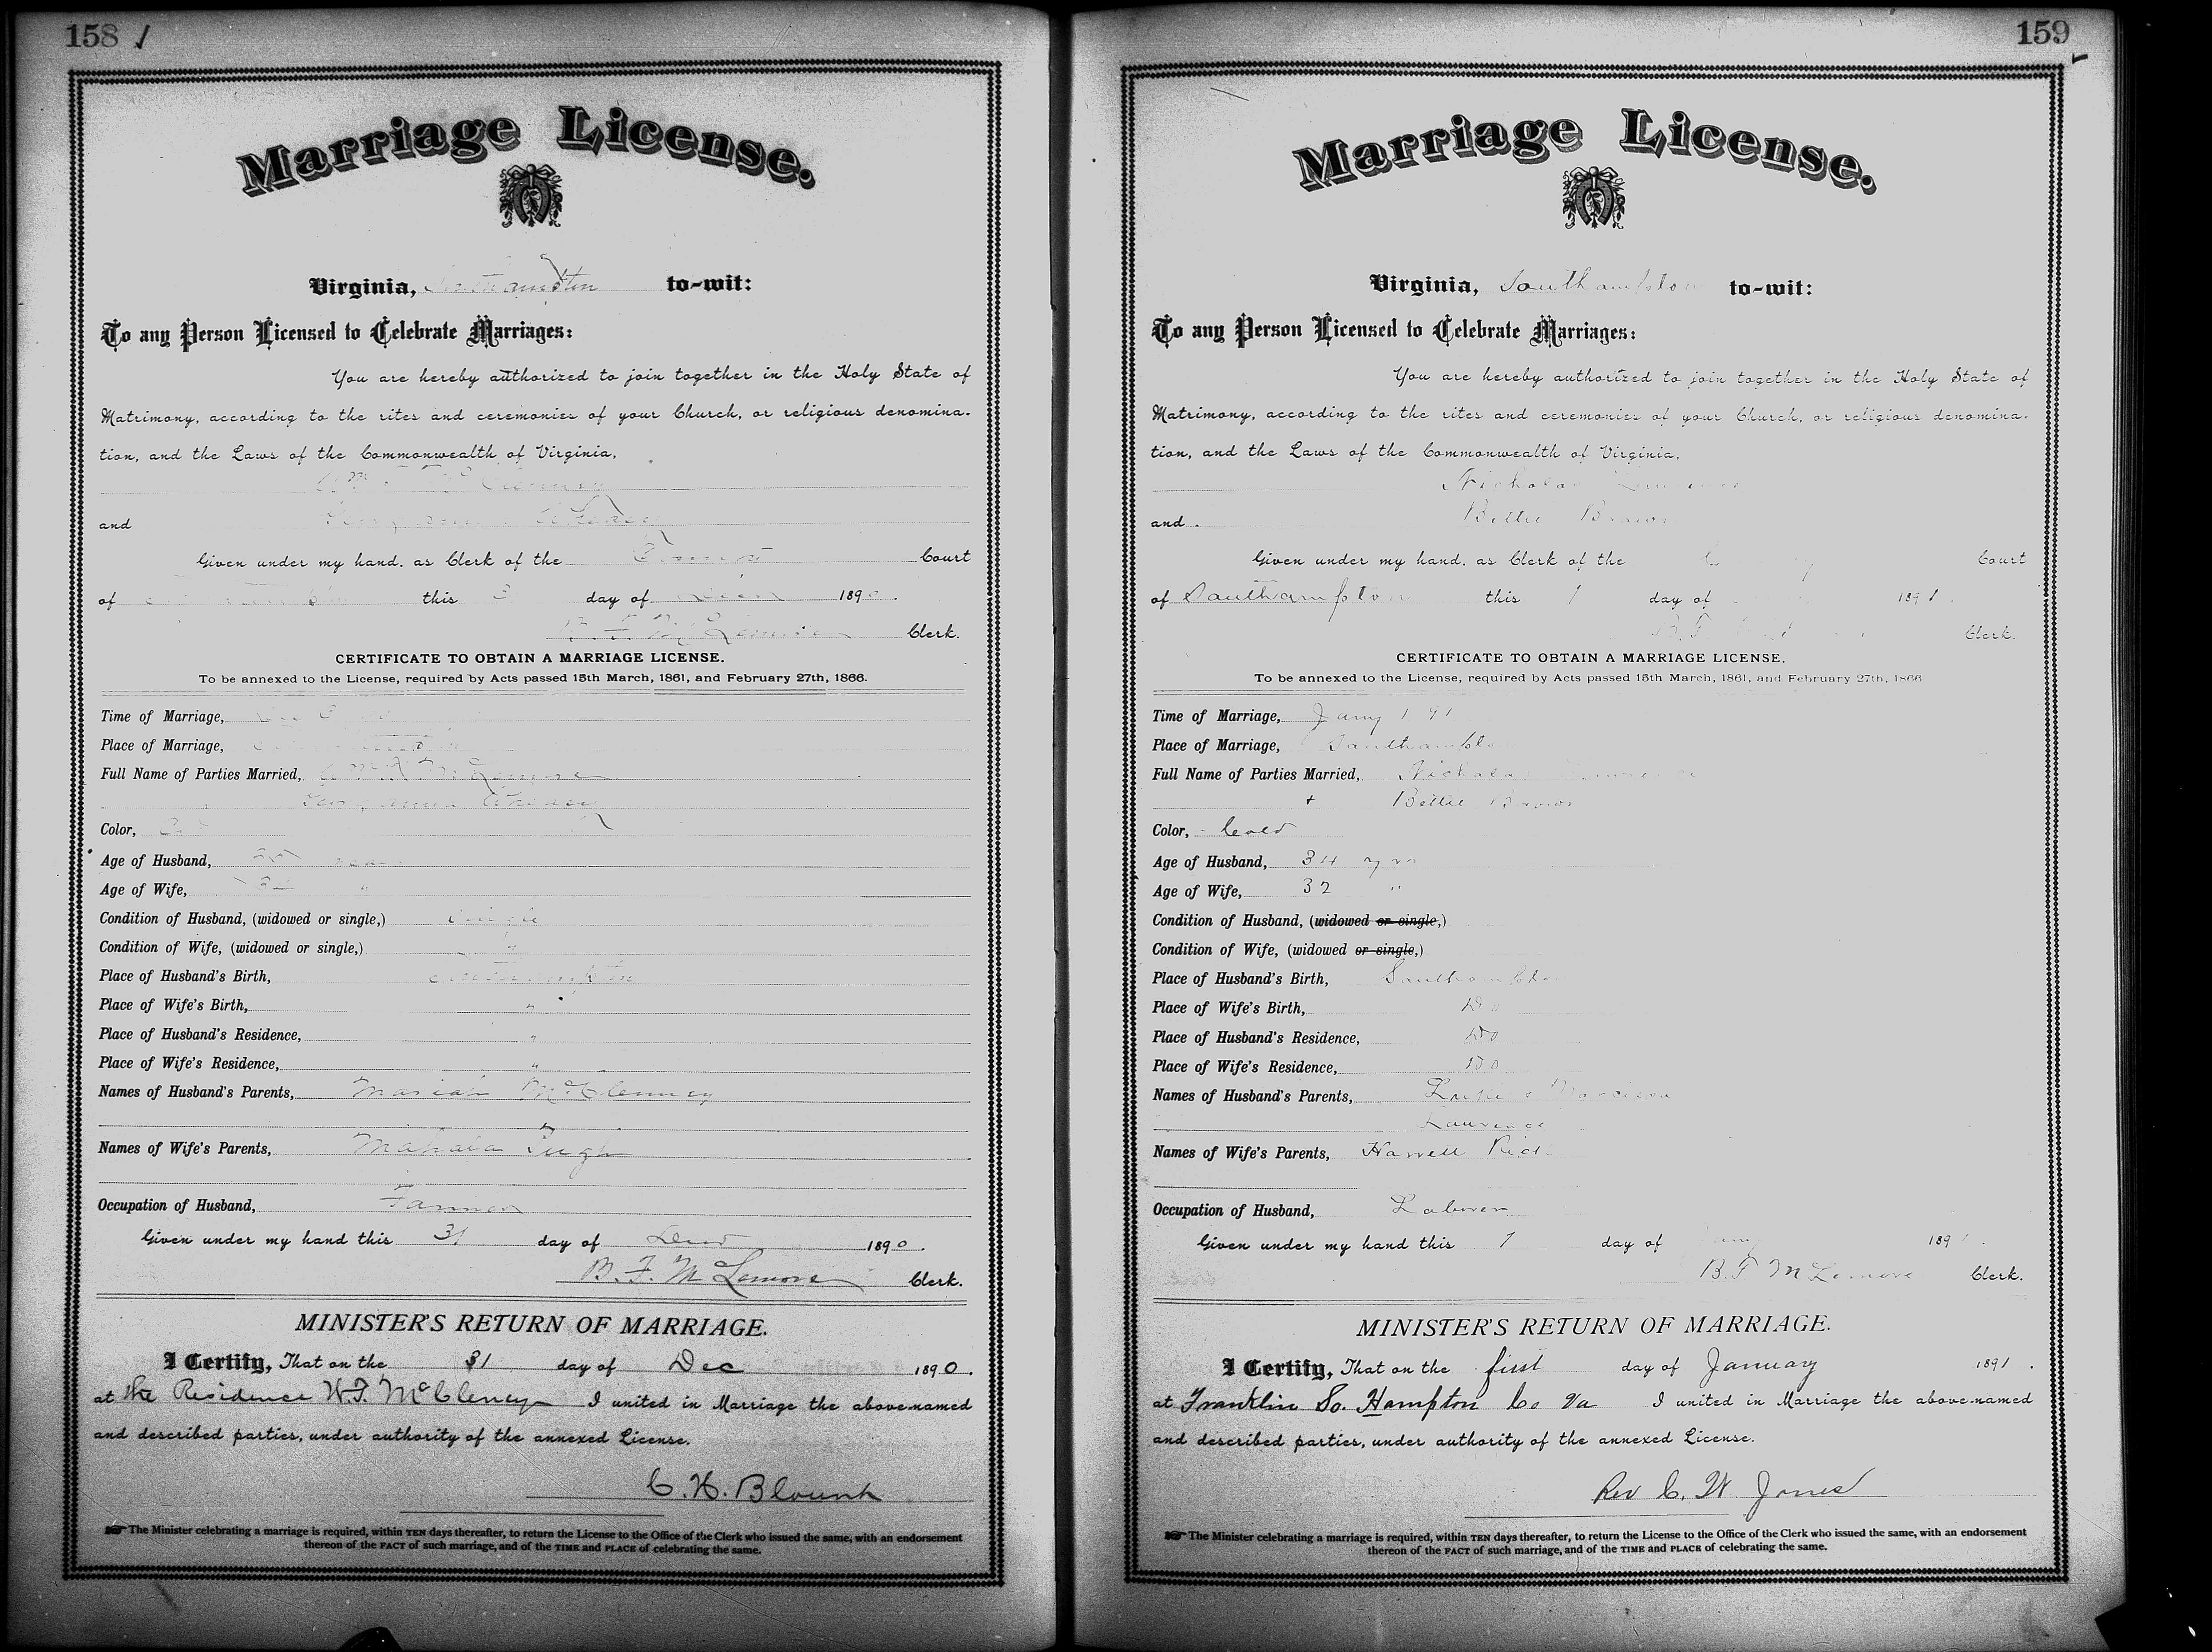 158
Marriage License.
Virginia, Southampton to-wit:
To any Person Licensed to Celebrate Marriages:
You are hereby authorized to join together in the Holy State of
Matrimony, according to the rites and ceremonies of your Church, or religious denomina-
tion, and the Laws of the Commonwealth of Virginia,
and
Given under my hand, as Clerk of the Court
of this day of 1890.
B. F. McLemore Clerk.
CERTIFICATE TO OBTAIN A MARRIAGE LICENSE.
To be annexed to the License, required by Acts passed 15th March, 1861, and February 27th, 1866.
Time of Marriage,
Place of Marriage,
Full Name of Parties Married,
Color,
Age of Husband,
Age of Wife,
Condition of Husband, (widowed or single,) single
Condition of Wife, (widowed or single,) "
Place of Husband's Birth, Southampton
Place of Wife's Birth, "
Place of Husband's Residence, "
Place of Wife's Residence, "
Names of Husband's Parents, Mariah McClenney
Names of Wife's Parents, Mahala Pugh
Occupation of Husband, Farmer
Given under my hand this 31 day of 1890.
B. F. McLemore Clerk.
MINISTER'S RETURN OF MARRIAGE.
I Certify, That on the 31 day of Dec 1890.
at the Residence W.T. McCleney I united in Marriage the above-named
and described parties, under authority of the annexed License.
C. H. Blount
The Minister celebrating a marriage is required, within TEN days thereafter, to return the License to the Office of the Clerk who issued the same, with an endorsement
thereon of the FACT of such marriage, and of the TIME and PLACE of celebrating the same.
159
Marriage License.
Virginia, Southampton to-wit:
To any Person Licensed to Celebrate Marriages:
You are hereby authorized to join together in the Holy State of
Matrimony, according to the rites and ceremonies of your Church, or religious denomina-
tion, and the Laws of the Commonwealth of Virginia,
Nicholas
and Bettie Brown
Given under my hand, as Clerk of the Court
of Southampton this 1 day of 1891.
B. F. Clerk.
CERTIFICATE TO OBTAIN A MARRIAGE LICENSE.
To be annexed to the License, required by Acts passed 15th March, 1861, and February 27th, 1866
Time of Marriage, Jany 1 91
Place of Marriage, Southampton
Full Name of Parties Married, Nicholas
+ Bettie Brown
Color, Cold
Age of Husband, 34 yrs
Age of Wife, 32 "
Condition of Husband, (widowed or single,)
Condition of Wife, (widowed or single,)
Place of Husband's Birth, Southampton
Place of Wife's Birth, Do
Place of Husband's Residence, Do
Place of Wife's Residence, Do
Names of Husband's Parents,
Laurence
Names of Wife's Parents, Harrell
Occupation of Husband, Laborer
Given under my hand this 1 day of 189
B. F. McLemore Clerk.
MINISTER'S RETURN OF MARRIAGE.
I Certify, That on the first day of January 1891.
at Franklin So. Hampton Co Va I united in Marriage the above-named
and described parties, under authority of the annexed License.
Rev C. W. Jones
The Minister celebrating a marriage is required, within TEN days thereafter, to return the License to the Office of the Clerk who issued the same, with an endorsement
thereon of the FACT of such marriage, and of the TIME and PLACE of celebrating the same.